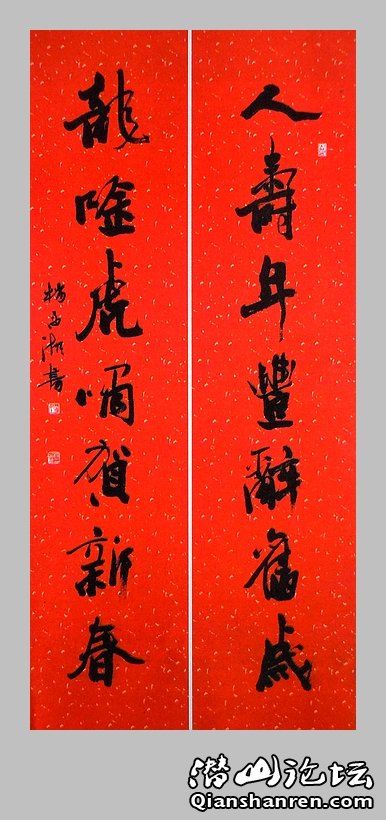 人壽年豐辭舊歲
龍唫虎嘯賀新春
潜山论坛
Qianshanren.com